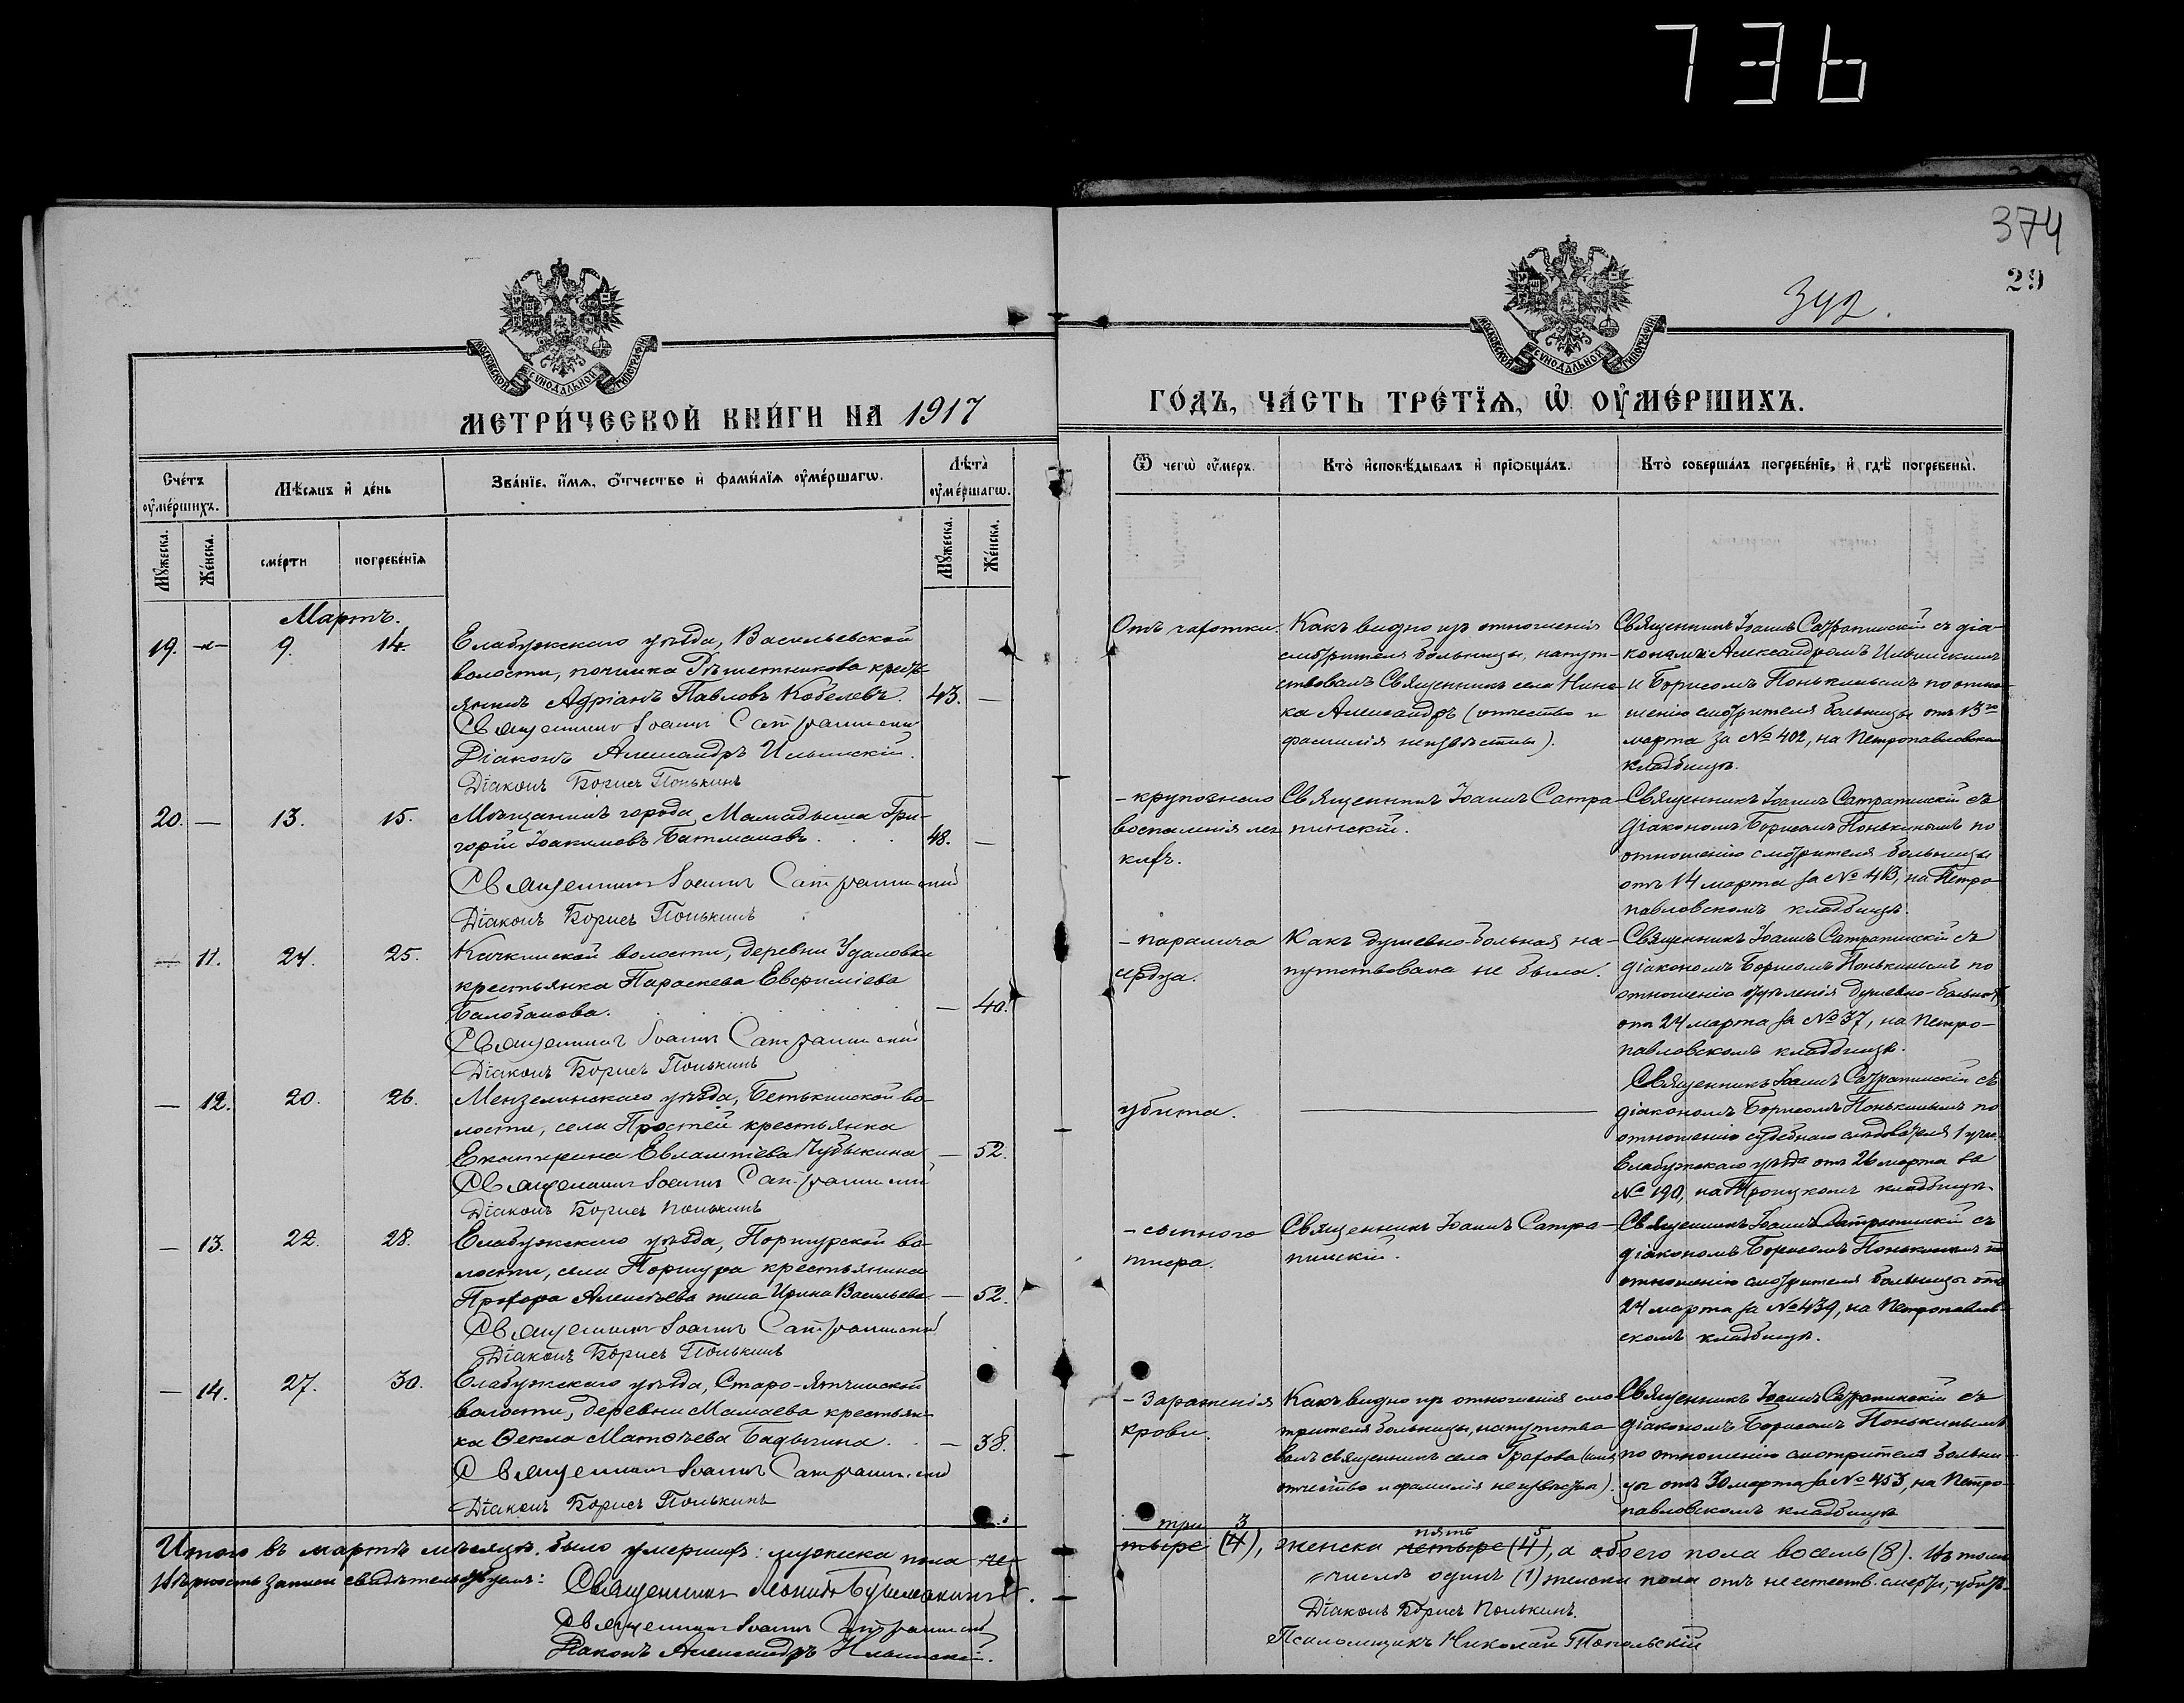 736
374
29
392.
МОСКОВСКОЙ СѴНОДАЛЬНОЙ ТИПОГРАФІИ
МОСКОВСКОЙ СѴНОДАЛЬНОЙ ТИПОГРАФІИ
МЕТРИ́ЧЕСКОЙ КНИ́ГИ НА 1917
ГО́ДЪ, ЧА́СТЬ ТРЕ́ТЇѦ, Ѡ҆ ОУ҆МЕ́РШИХЪ.
Сче́тъ оу҆ме́ршихъ.
Мѣ́сяцъ и҆ де́нь
Зва́нїе, и҆́мѧ, ѻ҆́тчество и҆ фами́лїѧ оу҆ме́ршагѡ.
Лѣ́та оу҆ме́ршагѡ.
Ѿ чегѡ̀ оу҆́меръ.
Кто̀ и҆сповѣ́дывалъ и҆ прїѻбща́лъ.
Кто̀ соверша́лъ погребе́нїе, и҆ гдѣ̀ погребены̀.
Мꙋ́жеска.
Же́нска.
сме́рти
погребе́нїѧ
Мꙋ́жеска.
Же́нска.
Мартъ.
19. 9. 14.
Елабужскаго уѣзда, Васильевской
волости, починка Рѣшетникова кресть-
янинъ Адріанъ Павловъ Кобелевъ. 43. —
Священникъ Іоаннъ Сатрапинскій
Діаконъ Александръ Ильинскій.
Діаконъ Борисъ Понькинъ
Отъ чахотки.
Какъ видно изъ отношенія
смотрителя больницы, напут-
ствовалъ Священникъ села
Александръ (отчество и
фамилія неизвѣстны).
Священникъ Іоаннъ Сатрапинскій съ діа-
кономъ Александромъ Ильинскимъ
и Борисомъ Понькинымъ по отно-
шенію смотрителя больницы отъ 13го
марта за № 402, на Петропавловском
кладбищѣ.
20. — 13. 15.
Мѣщанинъ города Мамадыша Гри-
горій Іоакимовъ Батмановъ. 48. —
Священникъ Іоаннъ Сатрапинскій
Діаконъ Борисъ Понькинъ
— крупознаго
воспаленія лег
кихъ.
Священникъ Іоаннъ Сатра-
пинскій.
Священникъ Іоаннъ Сатрапинскій съ
діакономъ Борисомъ Понькинымъ по
отношенію смотрителя больницы
отъ 14 марта за № 413, на Петро-
павловскомъ кладбищѣ.
— 11. 24. 25.
волости, деревни Удаловки
крестьянка Параскева Евфиміева
Балобанова. — 40.
Священникъ Іоаннъ Сатрапинскій
Діаконъ Борисъ Понькинъ
— паралича
сердца.
Какъ душевно-больная на-
путствована не была.
Священникъ Іоаннъ Сатрапинскій съ
діакономъ Борисомъ Понькинымъ по
отношенію отдѣленія душевно-больных
отъ 24 марта за № 37, на Петро-
павловскомъ кладбищѣ.
— 12. 20. 26.
Мензелинскаго уѣзда, Бетькинской во-
лости, села Простей крестьянка
Екатерина Евлампіева Чубыкина — 52.
Священникъ Іоаннъ Сатрапинскій
Діаконъ Борисъ Понькинъ
убита.
Священникъ Іоаннъ Сатрапинскій съ
діакономъ Борисомъ Понькинымъ по
отношенію судебнаго слѣдователя 1 уч.
Елабужскаго уѣзда отъ 26 марта за
№ 190, на Троицкомъ кладбищѣ.
— 13. 22. 28.
Елабужскаго уѣзда, Поршурской во-
лости, села Поршура крестьянина
Прохора Алексѣева жена Ирина Васильева — 52.
Священникъ Іоаннъ Сатрапинскій
Діаконъ Борисъ Понькинъ
— сыпного
тифа.
Священникъ Іоаннъ Сатра-
пинскій.
Священникъ Іоаннъ Сатрапинскій съ
діакономъ Борисомъ Понькинымъ по
отношенію смотрителя больницы отъ
24 марта за № 439, на Петропавлов-
скомъ кладбищѣ.
— 14. 27. 30.
Елабужскаго уѣзда, Старо-Ятчинской
волости, деревни Мамаева крестьян-
ка Ѳекла Матѳѣева Бадыгина. — 38.
Священникъ Іоаннъ Сатрапинскій
Діаконъ Борисъ Понькинъ
— Зараженія
крови.
Какъ видно изъ отношенія смо
трителя больницы, напутство-
валъ священникъ села Грахова (имя
отчество и фамилія неизвѣстны).
Священникъ Іоаннъ Сатрапинскій съ
діакономъ Борисомъ Понькинымъ
по отношенію смотрителя больни-
цы отъ 30 марта за № 453, на Петро-
павловскомъ кладбищѣ
Итого въ мартѣ мѣсяцѣ было умершихъ: мужеска пола че-
три 3
тыре (4), женска пять 5 четыре (4), а обоего пола восемь (8). Въ томъ
числѣ одинъ (1) женска пола отъ неестеств. смерти,
Вѣрность записи свидѣтельствуемъ: Священникъ
Священникъ Іоаннъ Сатрапинскій
Діаконъ Александръ Ильинскій.
Діаконъ Борисъ Понькинъ.
Псаломщикъ Николай Топольскій